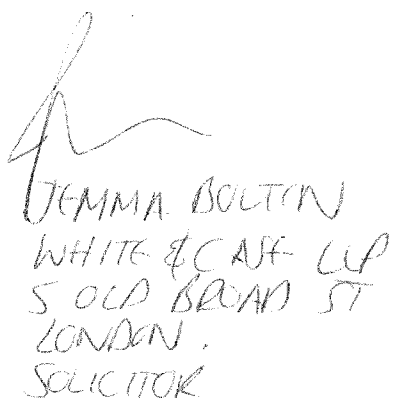 JEMMA BOLTON
WHITE & CASE LLP
5 OLD BROAD ST
LONDON.
SOLICITOR